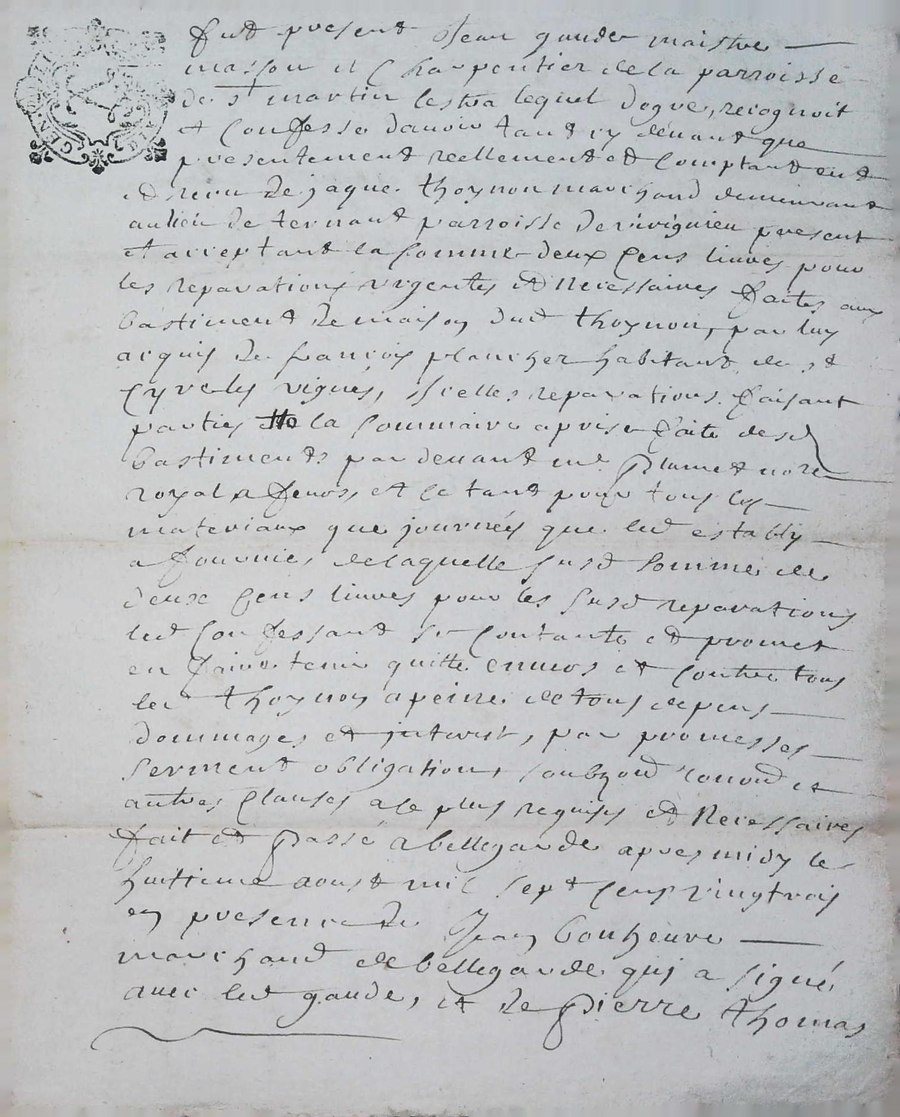 fut present Jean gaude maistre
masson et Charpentier de la parroisse
de st martin lestra lequel de gre, recognoit
et Confesse d'avoir tant cy devant que
presentement reellement et Comptant eut
et receu de jaque thoynon marchand demeurant
au lieu de ternant parroisse de rivignieu present
et acceptant la somme deux Cens livres pour
les reparations urgentes et Necessaires faites aux
bastiment de maison dud thoynon, par luy
acquis de francois plancher habitant de st
Cyre les vignes, Icelles reparations faisant
parties de la sommaire aprise faite desd
bastiments par devant me nore
royal a feurs et ce tant pour tous les
materiaux que journées que led estably
a fournies de laquelle susd somme de
deux Cens livres pour les susd reparations
led Confessant se Contante et promet
en faire tenir quitte envers et contre tous
led thoynon a peine de tous depens
dommages et interest, par promesses
serment obligation, soubz on renon et
autres Clauses a ce plus requises et Necessaires
fait et passé a bellegarde apres midy le
huitieme aoust mil sept Cens vingtrois
en presence de Jean bonheure
marchand de bellegarde qui a signé
avec led gaude, et de pierre thomas